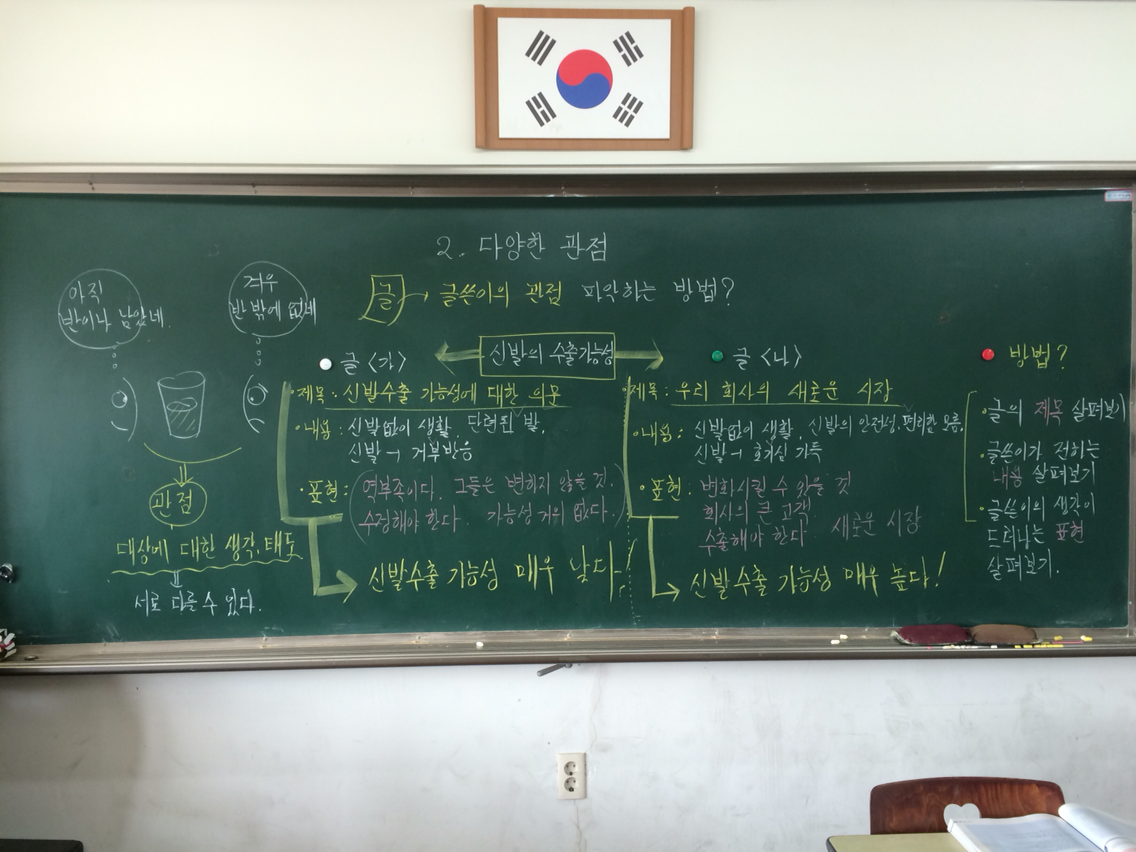 2. 다양한 관점
글 → 글쓴이의 관점 파악하는 방법?
아직
반이나 남았네.
겨우
반 밖에 없네
관점
대상에 대한 생각, 태도
서로 다를 수 있다.
신발의 수출가능성
글 <가>
·제목: 신발수출 가능성에 대한 의문
·내용: 신발없이 생활 단련된 발,
신발 → 거부반응
·표현: 역부족이다. 그들은 변하지 않을 것.
수정해야 한다. 가능성 거의 없다.
신발수출 가능성 매우 낮다!
글 <나>
·제목: 우리 회사의 새로운 시장
·내용: 신발없이 생활, 신발의 안전성, 편리함 모름,
신발 → 호기심 가득
·표현: 변화시킬 수 있을 것
회사의 큰 고객
수출해야 한다. 새로운 시장
신발수출 가능성 매우 높다!
방법?
·글의 제목 살펴보기
·글쓴이가 전하는
내용 살펴보기
·글쓴이의 생각이
드러나는 표현
살펴보기.